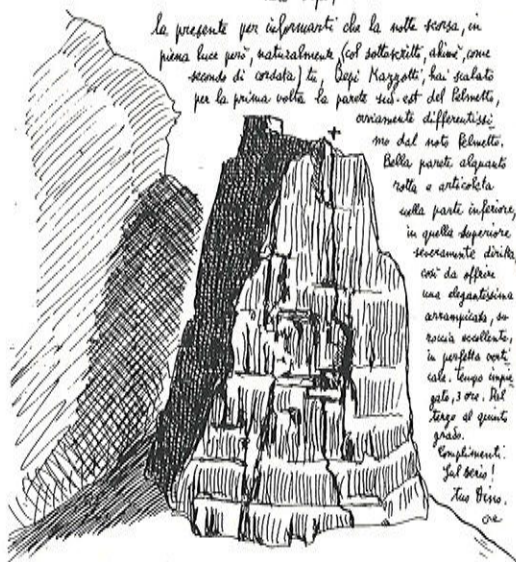 la presente per informarti che la notte scorsa, in
piena luce però, naturalmente, (col sottoscritto, ahimè, come
secondo di cordata) tu, Bepi Mazzotti, hai scalato
per la prima volta la parete sud-est del Pelmetto,
ovviamente differentissi
mo dal noto Pelmetto.
Bella parete alquanto
rotta e articolata
nella parte inferiore,
in quella superiore
severamente diritta,
così da offrire
una elegantissima
arrampicata, su
roccia eccellente,
in perfetta verti
cale. tempo impie
gato, 3 ore. Dal
terzo al quinto
grado.
Complimenti.
Sul serio!
tuo Dino.